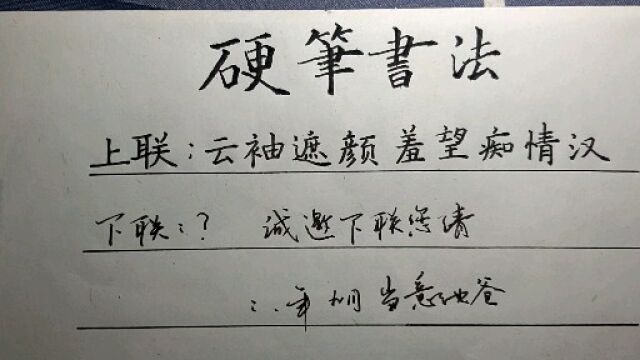 硬筆書法
上联：云袖遮颜羞望痴情汉
下联：？ 诚邀下联您请